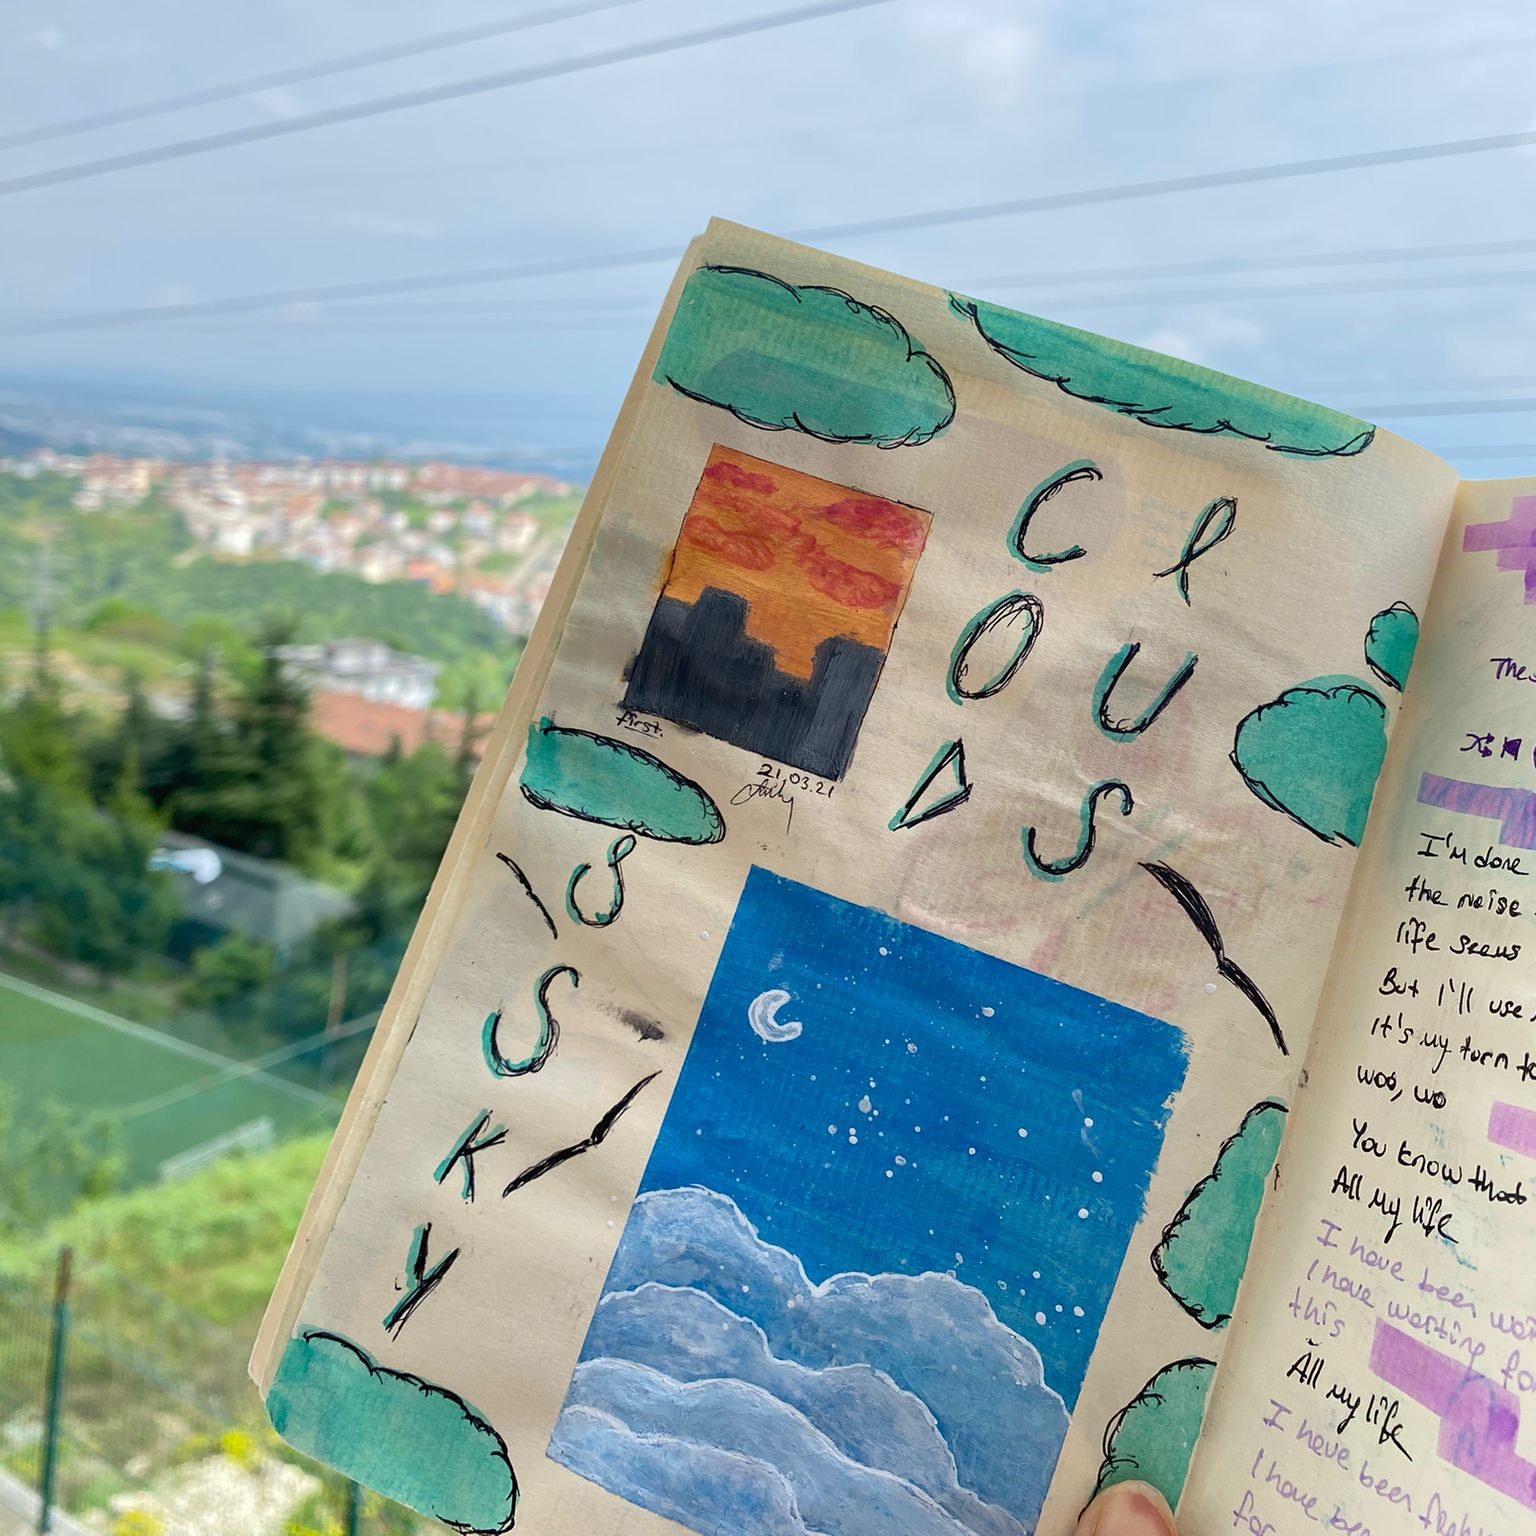 C l
O U
D S
first.
21.03.21
&
S
K
Y
I'm done
the noise
life seems
But I'll use
It's my turn to
woo, wo
You know that
All my life
I have been
I have waiting for
this
All my life
I have been
I have
for